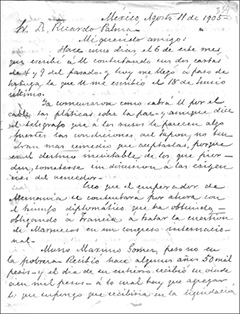 Mexico, Agosto 11 de 1905.
Sr. D. Ricardo Palma
Mi querido amigo:
Hace cinco días, el 6 de este mes,
que escribí a U. contestando sus dos cartas
de 4 y 9 del pasado y hoy me llegó a paso de
tortuga, la que U. me escribió el 18 de Junio
último.
Ya comenzaron como sabrá U. por el
cable, las pláticas sobre la paz y aunque dice
el telégrafo que a los rusos le parecen algo
fuertes las condiciones del Japón, no ten-
drán mas remedio que aceptarlas, porque
es el destino inevitable de los que pier-
den, someterse sin discusión, a las exigen-
cias del vencedor.
Creo que el emperador de
Alemania se contentará por ahora con
el triunfo diplomático que ha obtenido
obligando a Francia a tratar la cuestión
de Marruecos en un congreso internacio-
nal.
Murió Máximo Gómez, pero no en
la pobreza. Recibió hace algunos años 50 mil
pesos y el día de su entierro recibió su viuda
cien mil pesos a lo cual hay que agregar
lo que supongo que recibiría en la liquidación